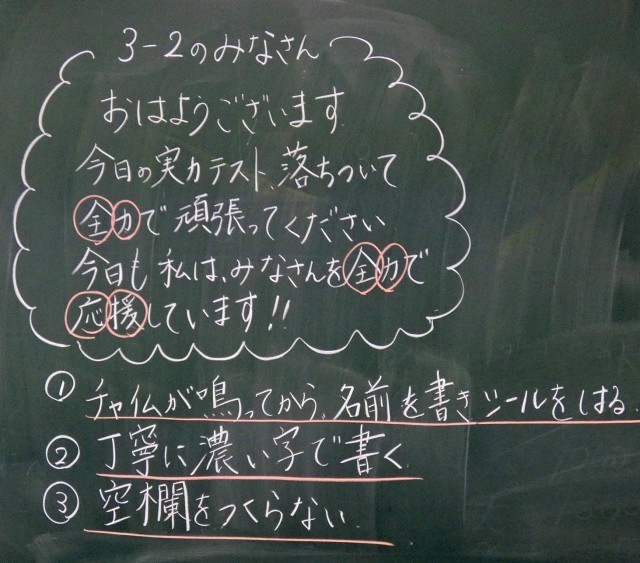 3-2のみなさん
おはようございます
今日の実力テスト、落ちついて
全力で頑張ってください
今日も私は、みなさんを全力で
応援しています!!
① チャイムが鳴ってから、名前を書きシールをはる.
② 丁寧に濃い字で書く.
③ 空欄をつくらない.